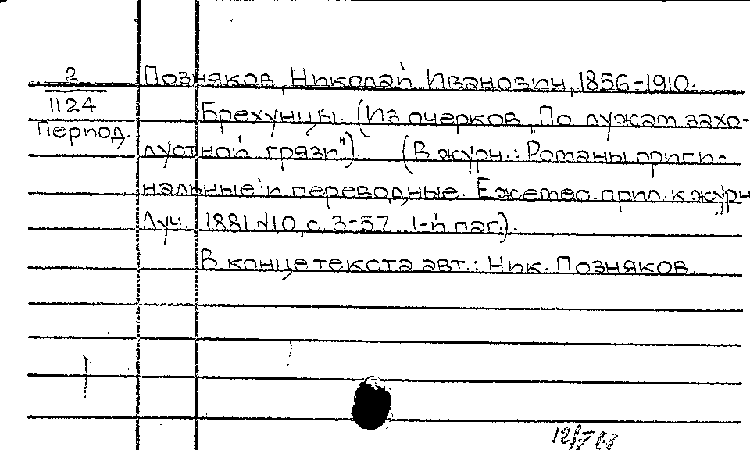 2
Позняков, Николай Иванович, 1856-1910.
1124
Брехунцы. (Из очерков „По лужам захо-
Период.
лустной грязи") (В журн.: Романы ориги-
нальные и переводные. Ежемес. прил. к журн.
Луч. 1881 №10, с. 3-57. 1-й паг.).
В конце текста авт.: Ник. Позняков.